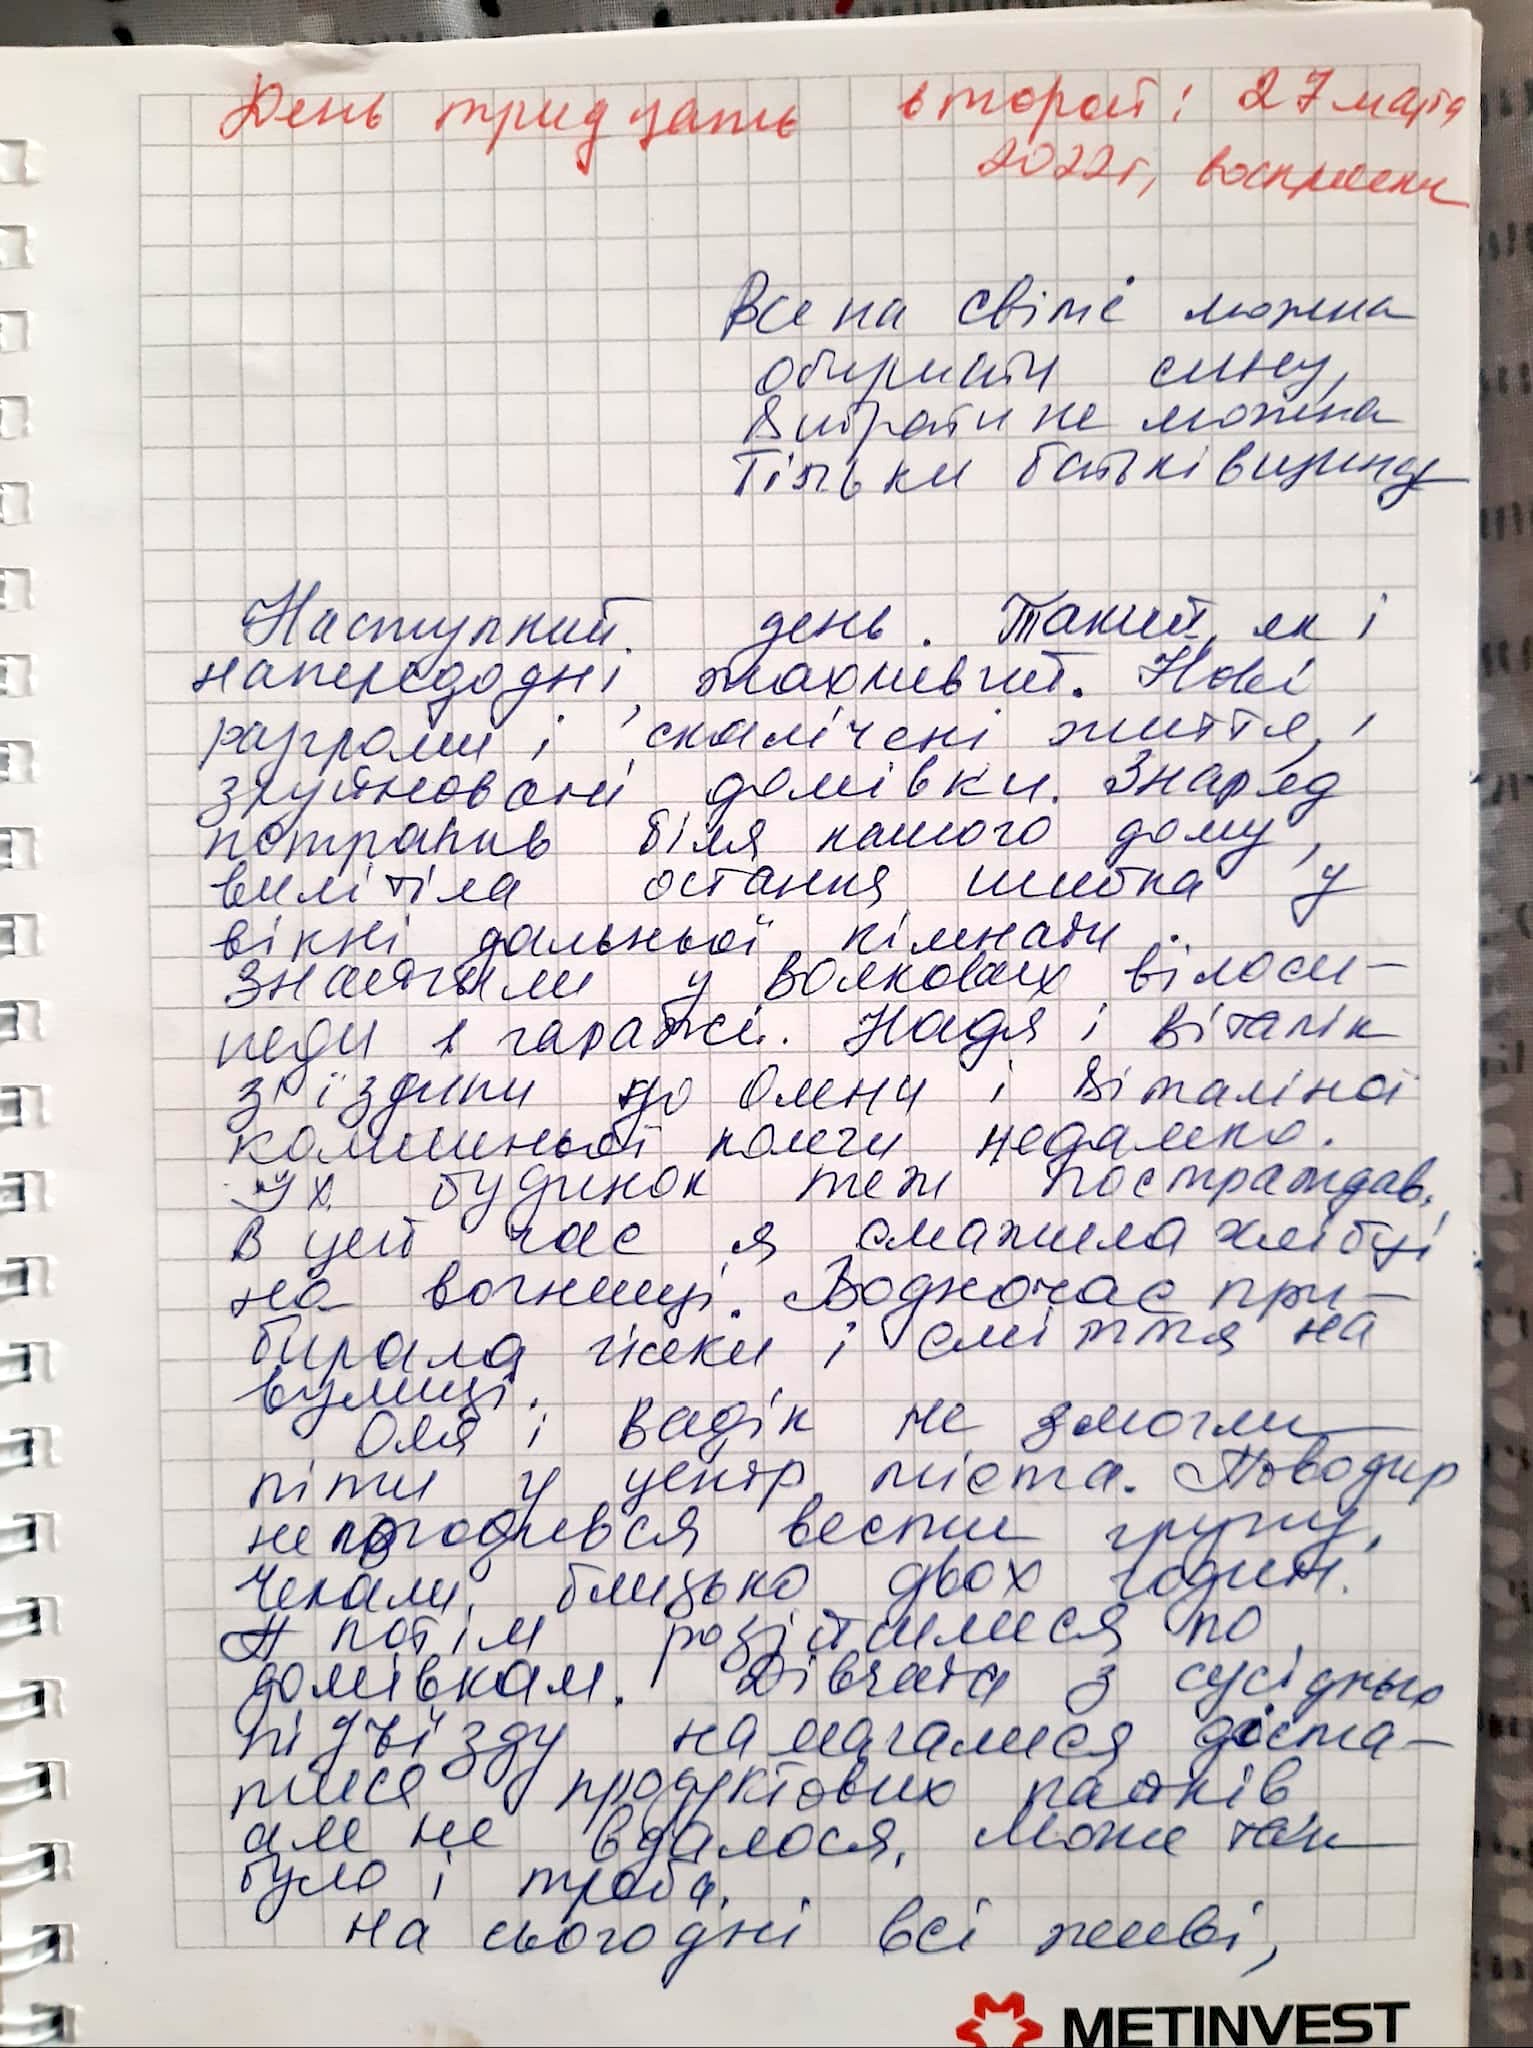 День тридцать второй: 27 марта
2022г, воскресенье
Все на світі можна
обирати сину,
Вибрати не можна
Тільки батьківщину
Наступний день. Такий, як і
напередодні, жахливий. Нові
розгроми і скалічені життя,
зруйновані домівки. Знаряд
потрапив біля нашого дому,
вилітіла остання шибка у
вікні дальньої кімнати.
Знайшли у Волкових вілоси-
педи в гаражі. Надя і Віталік
з'їздили до Олени і Віталіної
колишньої колеги недалеко.
Их будинок теж постраждав.
В цей час я смажила хлібці
на вогнищі. Водночас при-
бирала гілки і сміття на
вулиці.
Оля і Вадік не змогли
піти у центр міста. Поводир
не погодився вести групу,
Чекали близько двох годин.
А потім розійшлися по
домівкам. Дівчата з сусіднього
під'їзду намагалися доста-
тися продуктових пайків
але не вдалося. Може так
було і треба.
На сьогодні всі живі,
METINVEST